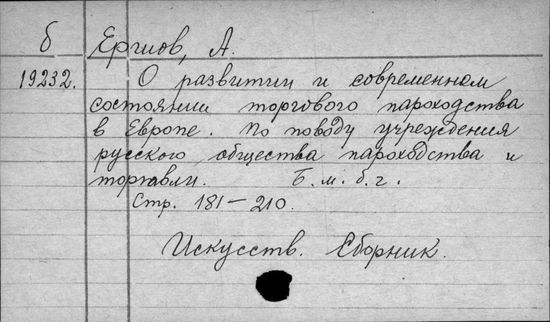 б Ершов, А.
19232. О развитии и современном
состоянии торгового пароходства
в Европе. По поводу учреждения
русского общества пароходства и
торговли. Б. м. б. г.
Стр. 181–210.
Искусств. Сборник.